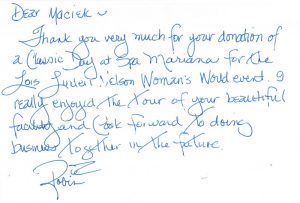 Dear Maciek ~
Thank you very much for your donation of
a Classic Day at Spa Mariana for the
Lois Woman's World event. I
really enjoyed the tour of your beautiful
facility and look forward to doing
business together in the future.
Robin